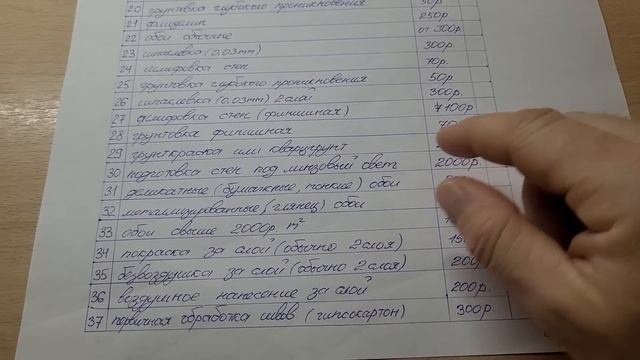 20 грунтовка глубокого проникновения 50р
21 флизелин 250р
22 обои обычные от 300р
23 шпаклевка (0,03mm) 300р
24 шлифовка стен 70р.
25 грунтовка глубокого проникновения 50р
26 шпаклевка (0,03mm) 2 слой 300р.
27 шлифовка стен (финишная) 100р
28 грунтовка финишная 70
29 грунткраска или кварцгрунт
30 подготовка стен под линзовый свет 2000р.
31 деликатные (бумажные, тонкие) обои
32 металлизированные (глянец) обои
33 обои свыше 2000р. m²
34 покраска за слой (обычно 2 слоя) 150
35 безвоздушка за слой (обычно 2 слоя) 200
36 воздушное нанесение за слой 200р.
37 первичная обработка швов (гипсокартон) 300р.